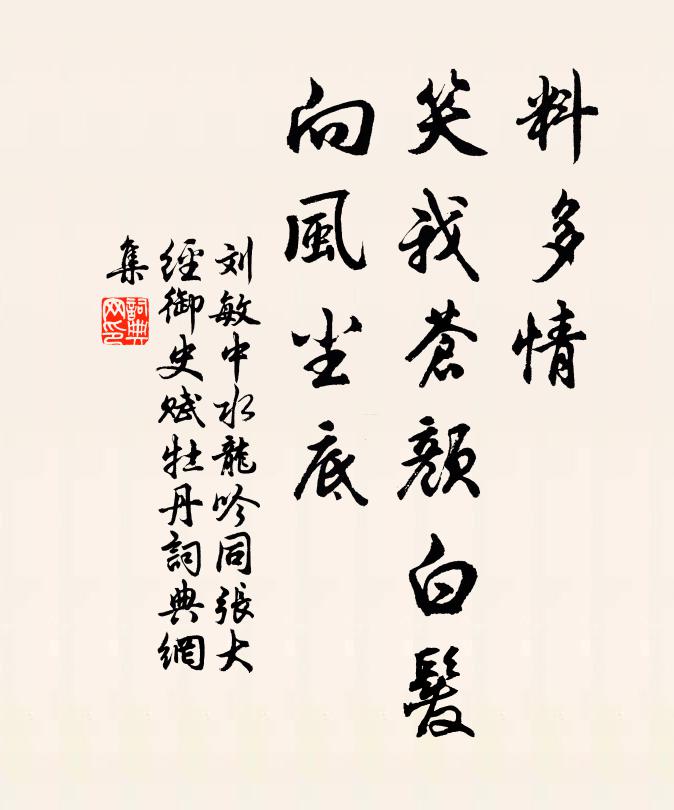 料多情
笑我蒼顏白髮
向風尘底
刘敏中水龍吟同張大
經御史賦牡丹詞典網
集
詞典
网印